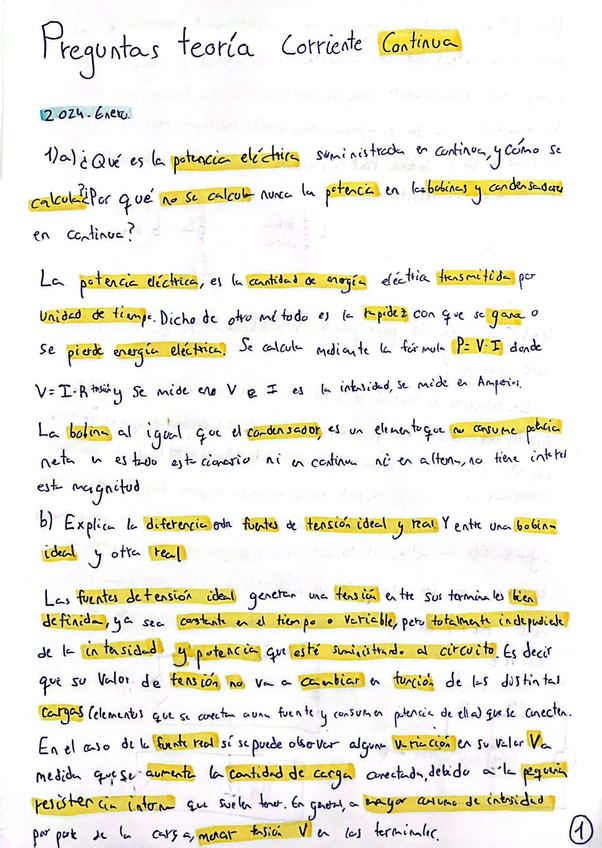 Preguntas teoría Corriente Continua
2024-Enero
1)a)¿Qué es la potencia eléctrica suministrada en continua, y cómo se
calcula?¿Por qué no se calcula nunca la potencia en las bobinas y condensadores
en continua?
La potencia eléctrica, es la cantidad de energía eléctrica transmitida por
unidad de tiempo. Dicho de otro método es la rapidez con que se gana o
se pierde energía eléctrica. Se calcula mediante la fórmula P=V·I donde
V=I·R tensión y se mide en V e I es la intesidad, se mide en Amperios.
La bobina al igual que el condensador, es un elemento que no consume potencia
neta en estado estacionario ni en continua ni en alterna, no tiene interés
esta magnitud
b) Explica la diferencia entre fuentes de tensión ideal y real Y entre una bobina
ideal y otra real
Las fuentes de tensión ideal generan una tensión entre sus terminales bien
definida, ya sea constante en el tiempo o variable, pero totalmente independiente
de la intensidad y potencia que esté suministrando al circuito. Es decir
que su valor de tensión no va a cambiar en función de las distintas
cargas (elementos que se conectan a una fuente y consumen potencia de ella) que se conecten.
En el caso de la fuente real sí se puede observar alguna variación en su valor V a
medida que se aumenta la cantidad de carga conectada, debido a la pequeña
resistencia interna que suelen tener. En general, a mayor consumo de intensidad
por parte de la carga, menor tensión V en los terminales.
1